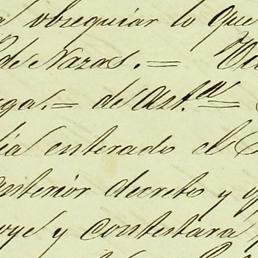 obsequiar lo que
de Nazas. =
ga. = de Ant.ª =
enterado el
anterior decreto y
y contestara